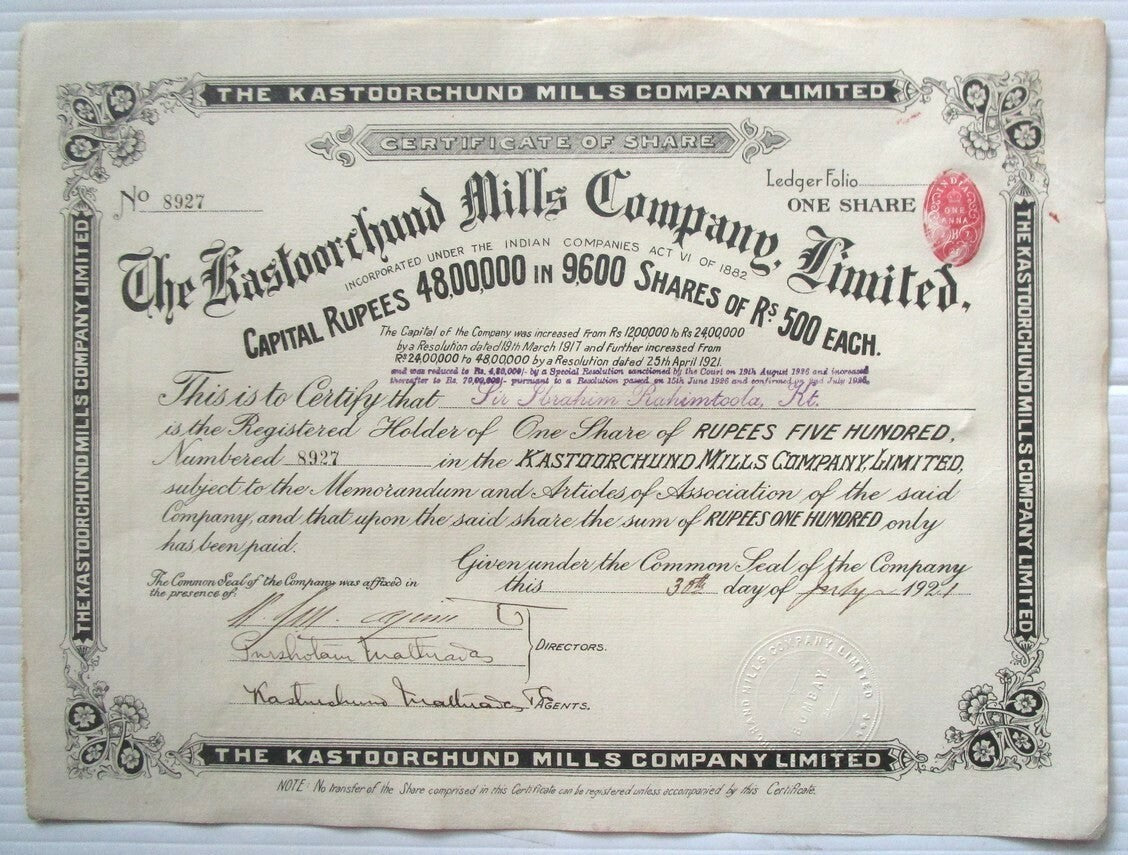 THE KASTOORCHUND MILLS COMPANY LIMITED
CERTIFICATE OF SHARE
No 8927
Ledger Folio
ONE SHARE
INDIA
ONE
ANNA
The Kastoorchund Mills Company, Limited.
INCORPORATED UNDER THE INDIAN COMPANIES ACT VI OF 1882
CAPITAL RUPEES 48,00,000 IN 9,600 SHARES OF Rs 500 EACH.
The Capital of the Company was increased From Rs 12,00,000 to Rs 24,00,000
by a Resolution dated 19th March 1917 and Further increased From
Rs 24,00,000 to 48,00,000 by a Resolution dated 25th April 1921.
and was reduced to Rs. 4,80,000/- by a Special Resolution sanctioned by the Court on 19th August 1926 and increased
thereafter to Rs. 70,00,000/- pursuant to a Resolution passed on 15th June 1926 and confirmed on 2nd July 1926.
This is to Certify that Sir Ibrahim Rahimtoola, Kt.
is the Registered Holder of One Share of RUPEES FIVE HUNDRED,
Numbered 8927 in the KASTOORCHUND MILLS COMPANY, LIMITED,
subject to the Memorandum and Articles of Association of the said
Company, and that upon the said share the sum of RUPEES ONE HUNDRED only
has been paid.
Given under the Common Seal of the Company
this 30th day of July 1921
The Common Seal of the Company was affixed in
the presence of:
Purshotam Mathradas
DIRECTORS.
AGENTS.
MILLS COMPANY LIMITED
BOMBAY
THE KASTOORCHUND MILLS COMPANY LIMITED
THE KASTOORCHUND MILLS COMPANY LIMITED
THE KASTOORCHUND MILLS COMPANY LIMITED
NOTE: No transfer of the Share comprised in this Certificate can be registered unless accompanied by this Certificate.